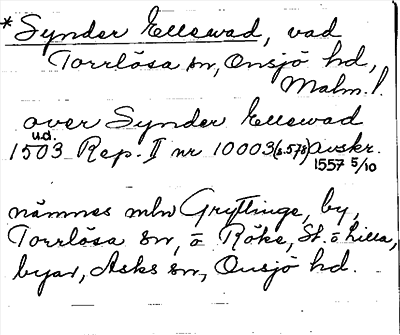 *Synder Ellewad, vad
Torrlösa sn, Onsjö hd,
Malm. l.
över Synder Ellewad
u.d.
1503 Rep. II nr 10003 (s. 578) avskr.
1557 5/10
nämnes mln Gryttinge, by,
Torrlösa sn, o Röke, St. o Lilla,
byar, Asks sn, Onsjö hd.